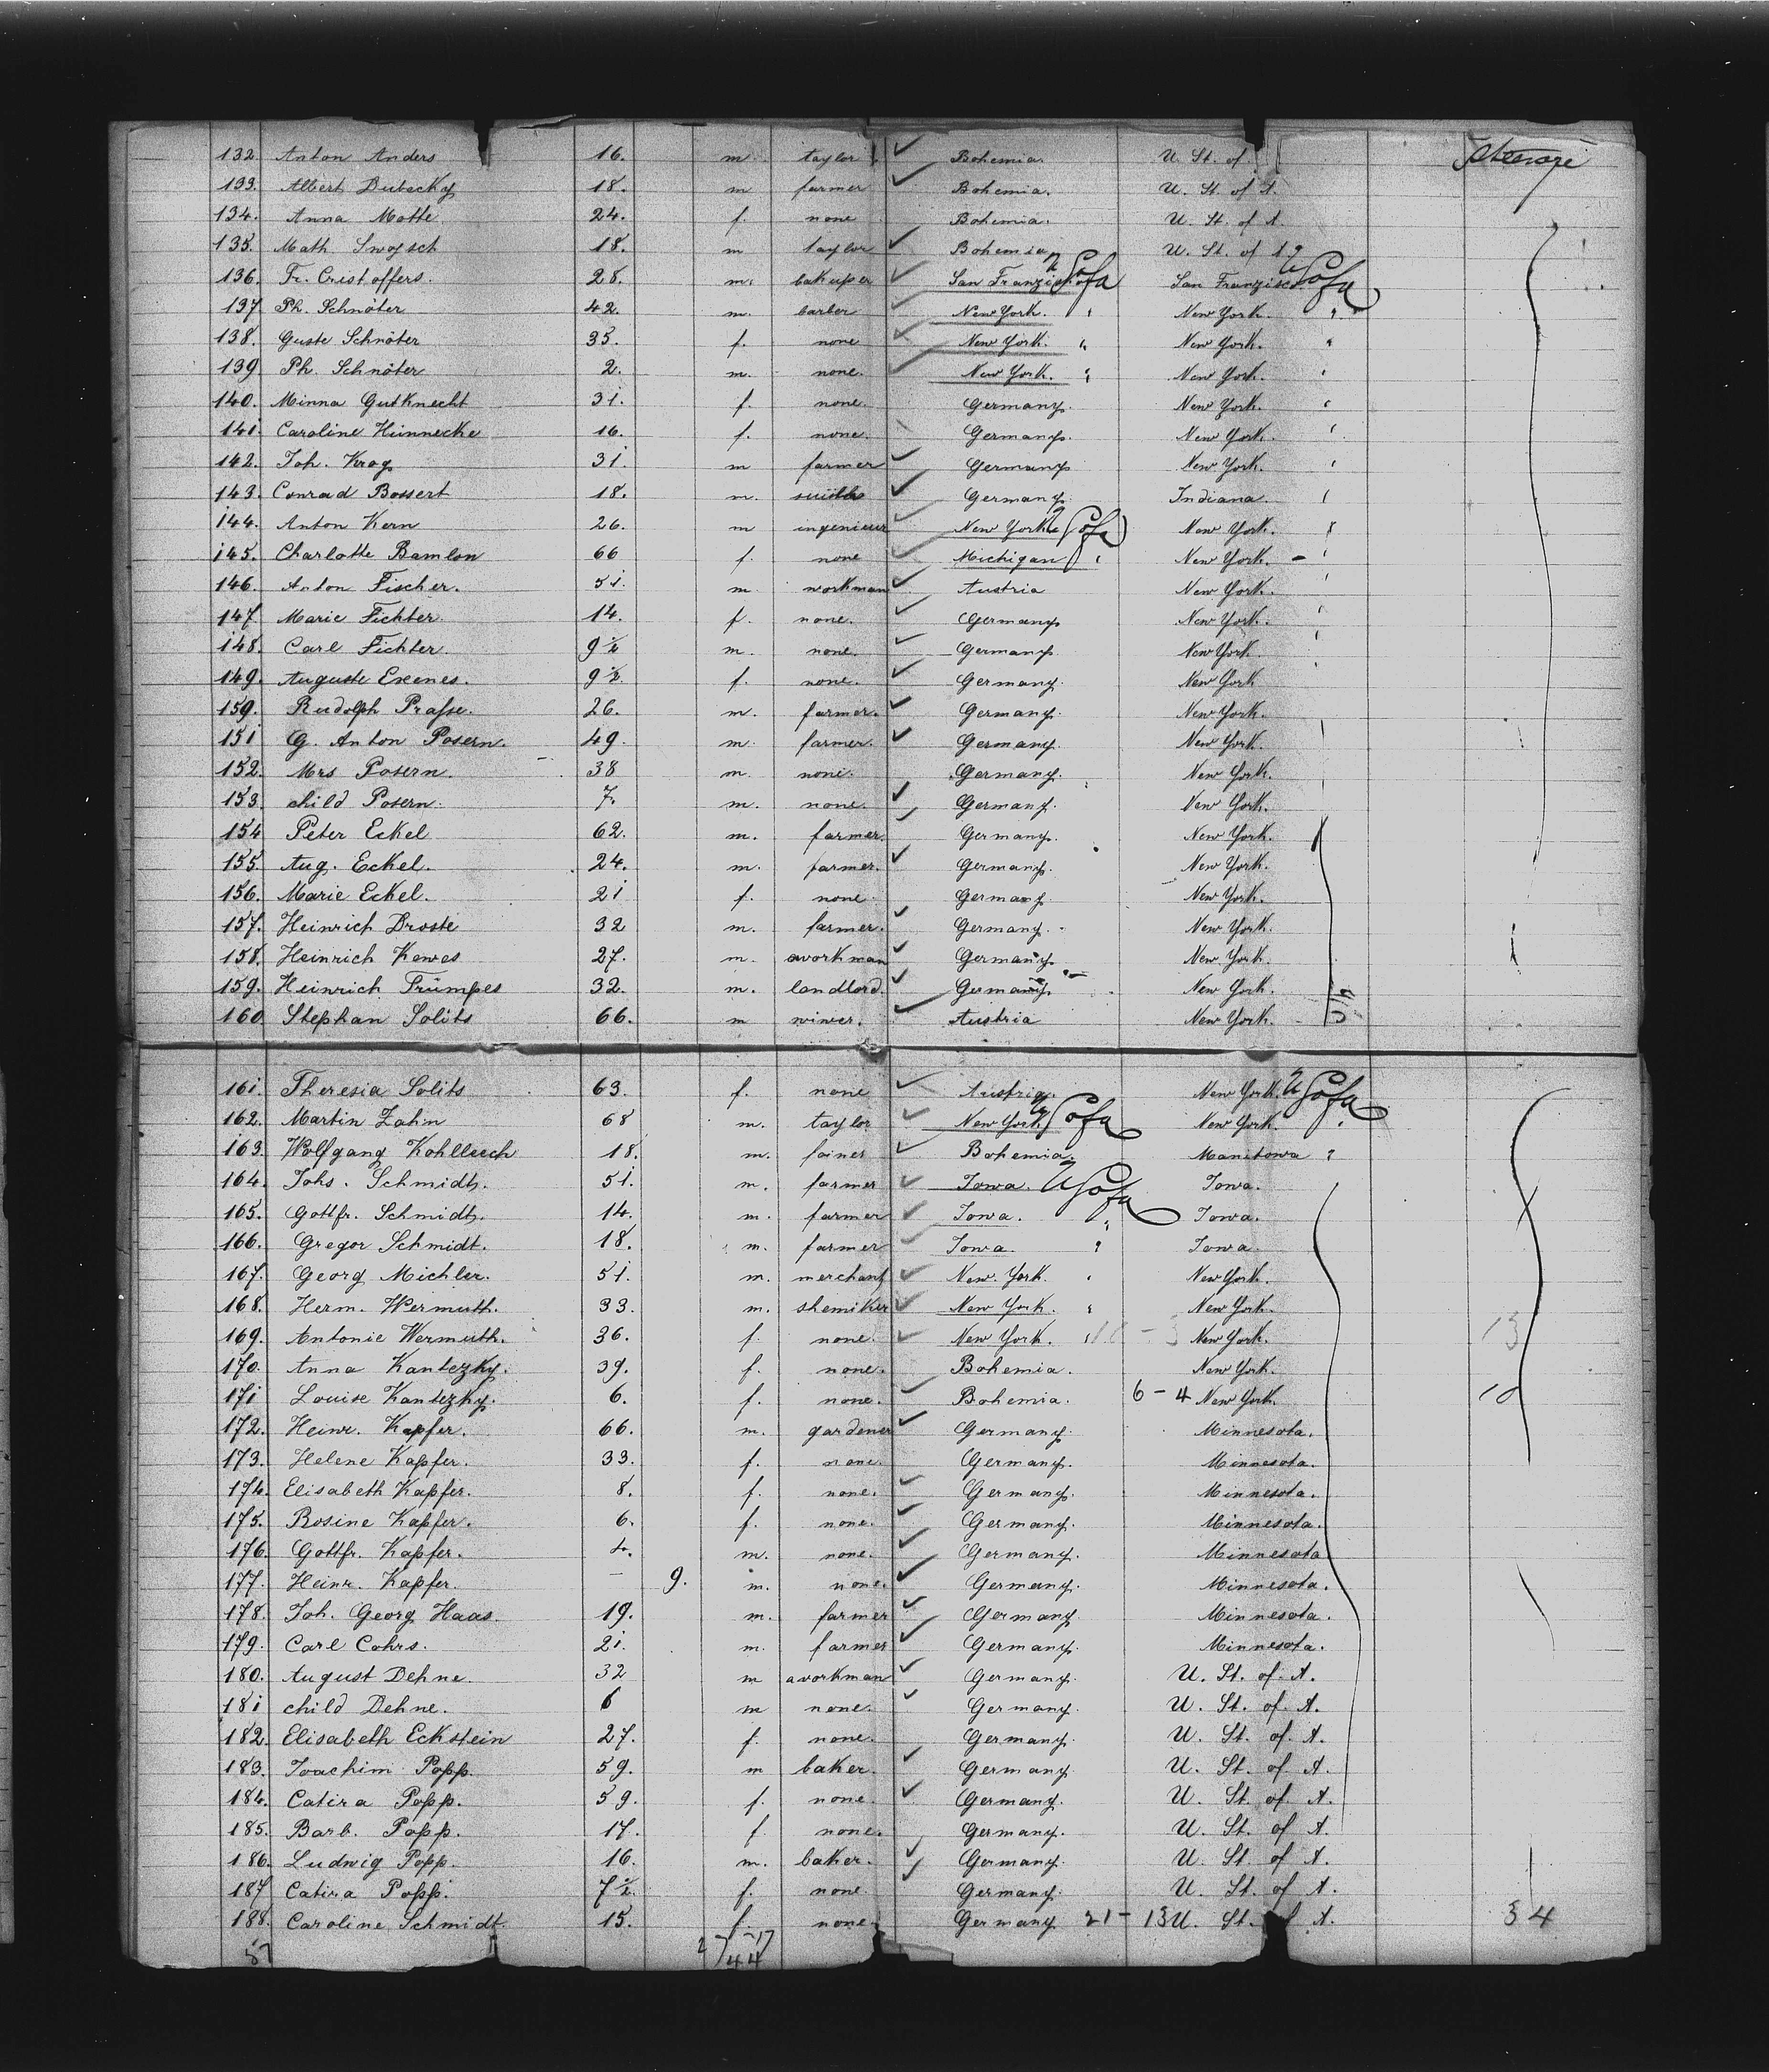 Steerage
132 Anton Anders 16. m. taylor Bohemia. U. St. of
133. Albert Dubecky 18. m farmer Bohemia. U. St. of A.
134. Anna Motte 24. f. none Bohemia. U. St. of A.
135. Math 18. m taylor Bohemia U. St. of A
136. Fr. Cristoffers. 28. m. San Franzisco U S of a San Franzisco U S of a
137 Ph. Schnöter 42. m. barber New York. " New York. "
138. Guste Schnöter 35. f. none New York. " New York. "
139 Ph. Schnöter 2. m. none. New York. " New York. "
140. Minna Gutknecht 31. f. none. Germany. New York. "
141. Caroline Hünnecke 16. f. none. Germany. New York. "
142. Joh. Krog 31. m farmer Germany New York. "
143. Conrad Bossert 18. m. Germany. Indiana "
144. Anton Kern 26. m ingenieur New York U S of a New York. "
145. Charlotte Bamlon 66 f. none Michigan " New York. - "
146. Anton Fischer. 51. m. workman Austria New York. "
147 Marie Fichter. 14. f. none. Germany New York. "
148. Carl Fichter. 9 1/2 m. none. Germany. New York "
149. Auguste Exenes. 9 1/2. f. none. Germany. New York "
159. Rudolph Prasse. 26. m. farmer. Germany. New York.
151 G. Anton Posern. 49. m. farmer. Germany. New York.
152. Mrs Posern. 38 m. none. Germany. New York.
153. child Posern. 7. m. none. Germany. New York.
154 Peter Eckel 62. m. farmer. Germany. New York.
155. Aug. Eckel. 24. m. farmer. Germany. New York.
156. Marie Eckel. 21 f. none. Germany. New York.
157. Heinrich Droste 32 m. farmer. Germany. New York.
158. Heinrich Kewes 27. m. aworkman Germany. New York.
159. Heinrich Trümpes 32. m. landlord. Germany. New York.
160 Stephan Solits 66. m winer. Austria New York.
161. Theresia Solits 63. f. none Austria. New York. U S of a
162. Martin Zahn 68 m. taylor New York U S of a New York. "
163. Wolfgang Kohlleech 18. m. Bohemia. Manitowa "
164. Johs. Schmidt. 51. m. farmer Iowa. U S of a Iowa.
165. Gottfr. Schmidt. 14. m. farmer Iowa. " Iowa.
166. Gregor Schmidt. 18. m. farmer Iowa. " Iowa.
167. Georg Michler. 51. m. merchant New York. " New York.
168. Herm. Wermuth. 33. m. shemiker New York. " New York.
169. Antonie Wermuth. 36. f. none. New York. " New York. 13
170. Anna Kantezky. 39. f. none. Bohemia. New York.
171 Louise Kantezky. 6. f. none. Bohemia. 6 - 4 New York. 10
172. Heinr. Kapfer. 66. m. gardener Germany. Minnesota.
173. Helene Kapfer. 33. f. none. Germany. Minnesota.
174. Elisabeth Kapfer. 8. f. none. Germany. Minnesota.
175. Rosine Kapfer. 6. f. none. Germany. Minnesota.
176. Gottfr. Kapfer. 4. m. none. Germany. Minnesota
177. Heinr. Kapfer. — 9. m. none. Germany. Minnesota.
178. Joh. Georg Haas. 19. m. farmer Germany. Minnesota.
179. Carl Cohrs. 21. m. farmer Germany. Minnesota.
180. August Dehne. 32 m aworkman Germany. U. St. of. A.
181 child Dehne. 6 m none. Germany. U. St. of. A.
182. Elisabeth Eckstein 27. f. none. Germany. U. St. of. A.
183. Joachim Popp. 59. m baker. Germany U. St. of A.
184. Catira Popp. 59. f. none. Germany. U. St. of A.
185. Barb. Popp. 17. f. none. Germany. U. St. of A.
186. Ludwig Popp. 16. m. baker. Germany. U. St. of A.
187 Catira Popp. 7 1/2. f. none. Germany. U. St. of A.
188. Caroline Schmidt. 15. f. none Germany 21 - 13 U. St. of A. 34
57 27 - 17
44